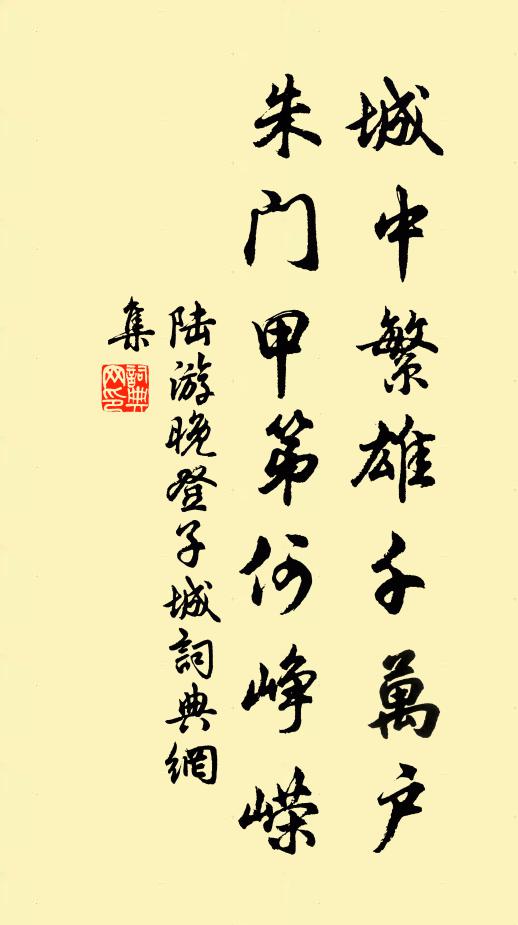 城中繁雄千萬户
朱门甲第何峥嵘
陆游晚登子城詞典網
集
詞典
网印